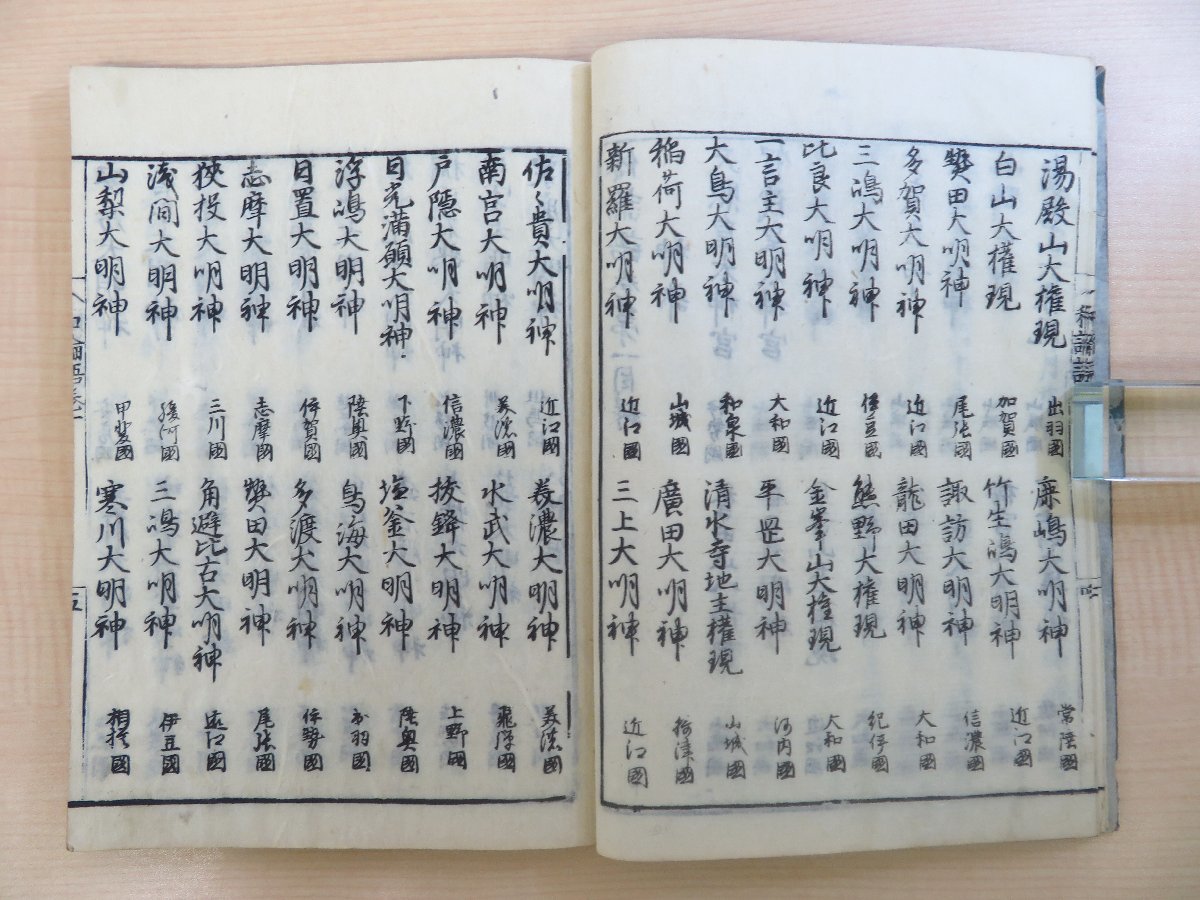 湯殿山大権現 出羽國 鹿嶋大明神 常陸國
白山大權現 加賀國 竹生嶋大明神 近江國
熱田大明神 尾張國 諏訪大明神 信濃國
多賀大明神 近江國 龍田大明神 大和國
三嶋大明神 伊豆國 熊野大權現 紀伊國
比良大明神 近江國 金峯山大權現 大和國
一言主大明神 大和國 平罡大明神 河内國
大鳥大明神 和泉國 清水寺地主權現 山城國
稲荷大明神 山城國 廣田大明神 摂津國
新羅大明神 近江國 三上大明神 近江國
佐々貴大明神 近江國 美濃大明神 美濃國
南宮大明神 美濃國 水武大明神 飛騨國
戸隠大明神 信濃國 抜鉾大明神 上野國
日光満願大明神 下野國 塩釜大明神 陸奥國
浮嶋大明神 陸奥國 鳥海大明神 出羽國
日置大明神 伊賀國 多渡大明神 伊勢國
志摩大明神 志摩國 熱田大明神 尾張國
狹投大明神 三川國 角避比古大明神 遠江國
浅間大明神 駿河國 三嶋大明神 伊豆國
山梨大明神 甲斐國 寒川大明神 相摸國